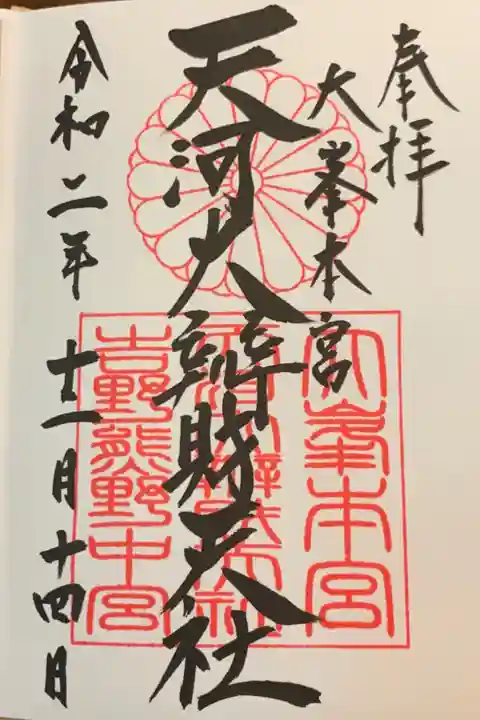 奉拝
大峯本宮
天河大辨財天社
令和二年十一月十四日
大峯本宮
天河大辨財天社
吉野熊野中宮